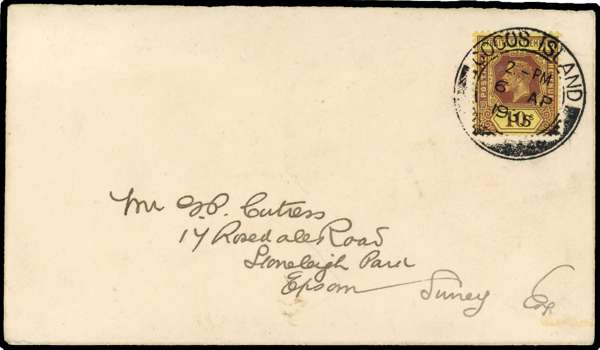 COCOS ISLAND
2 - PM
6 AP
19
10c
Mr G.P. Cutress
17 Rosedale Road
Stoneleigh Park
Epsom Surrey